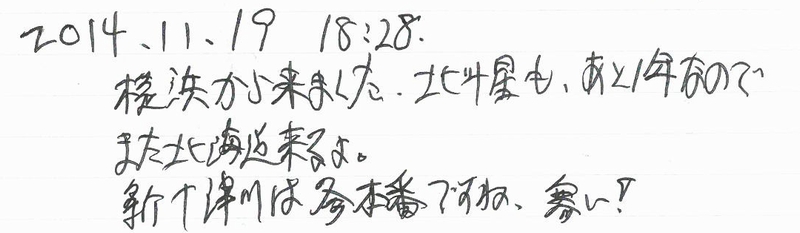 2014.11.19 18:28.
横浜から来ました。北斗星も、あと1年なので
また北海道来るよ。
新十津川は冬本番ですね、寒い!